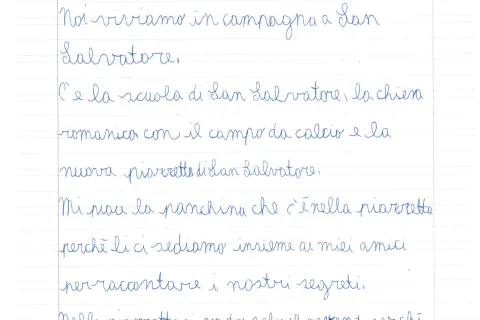 Noi viviamo in campagna a San
Salvatore.
C'è la scuola di San Salvatore, la chiesa
romanica con il campo da calcio e la
nuova piazzetta di San Salvatore.
Mi piace la panchina che c'è nella piazzetta
perchè li ci sediamo insieme ai miei amici
per raccontare i nostri segreti.